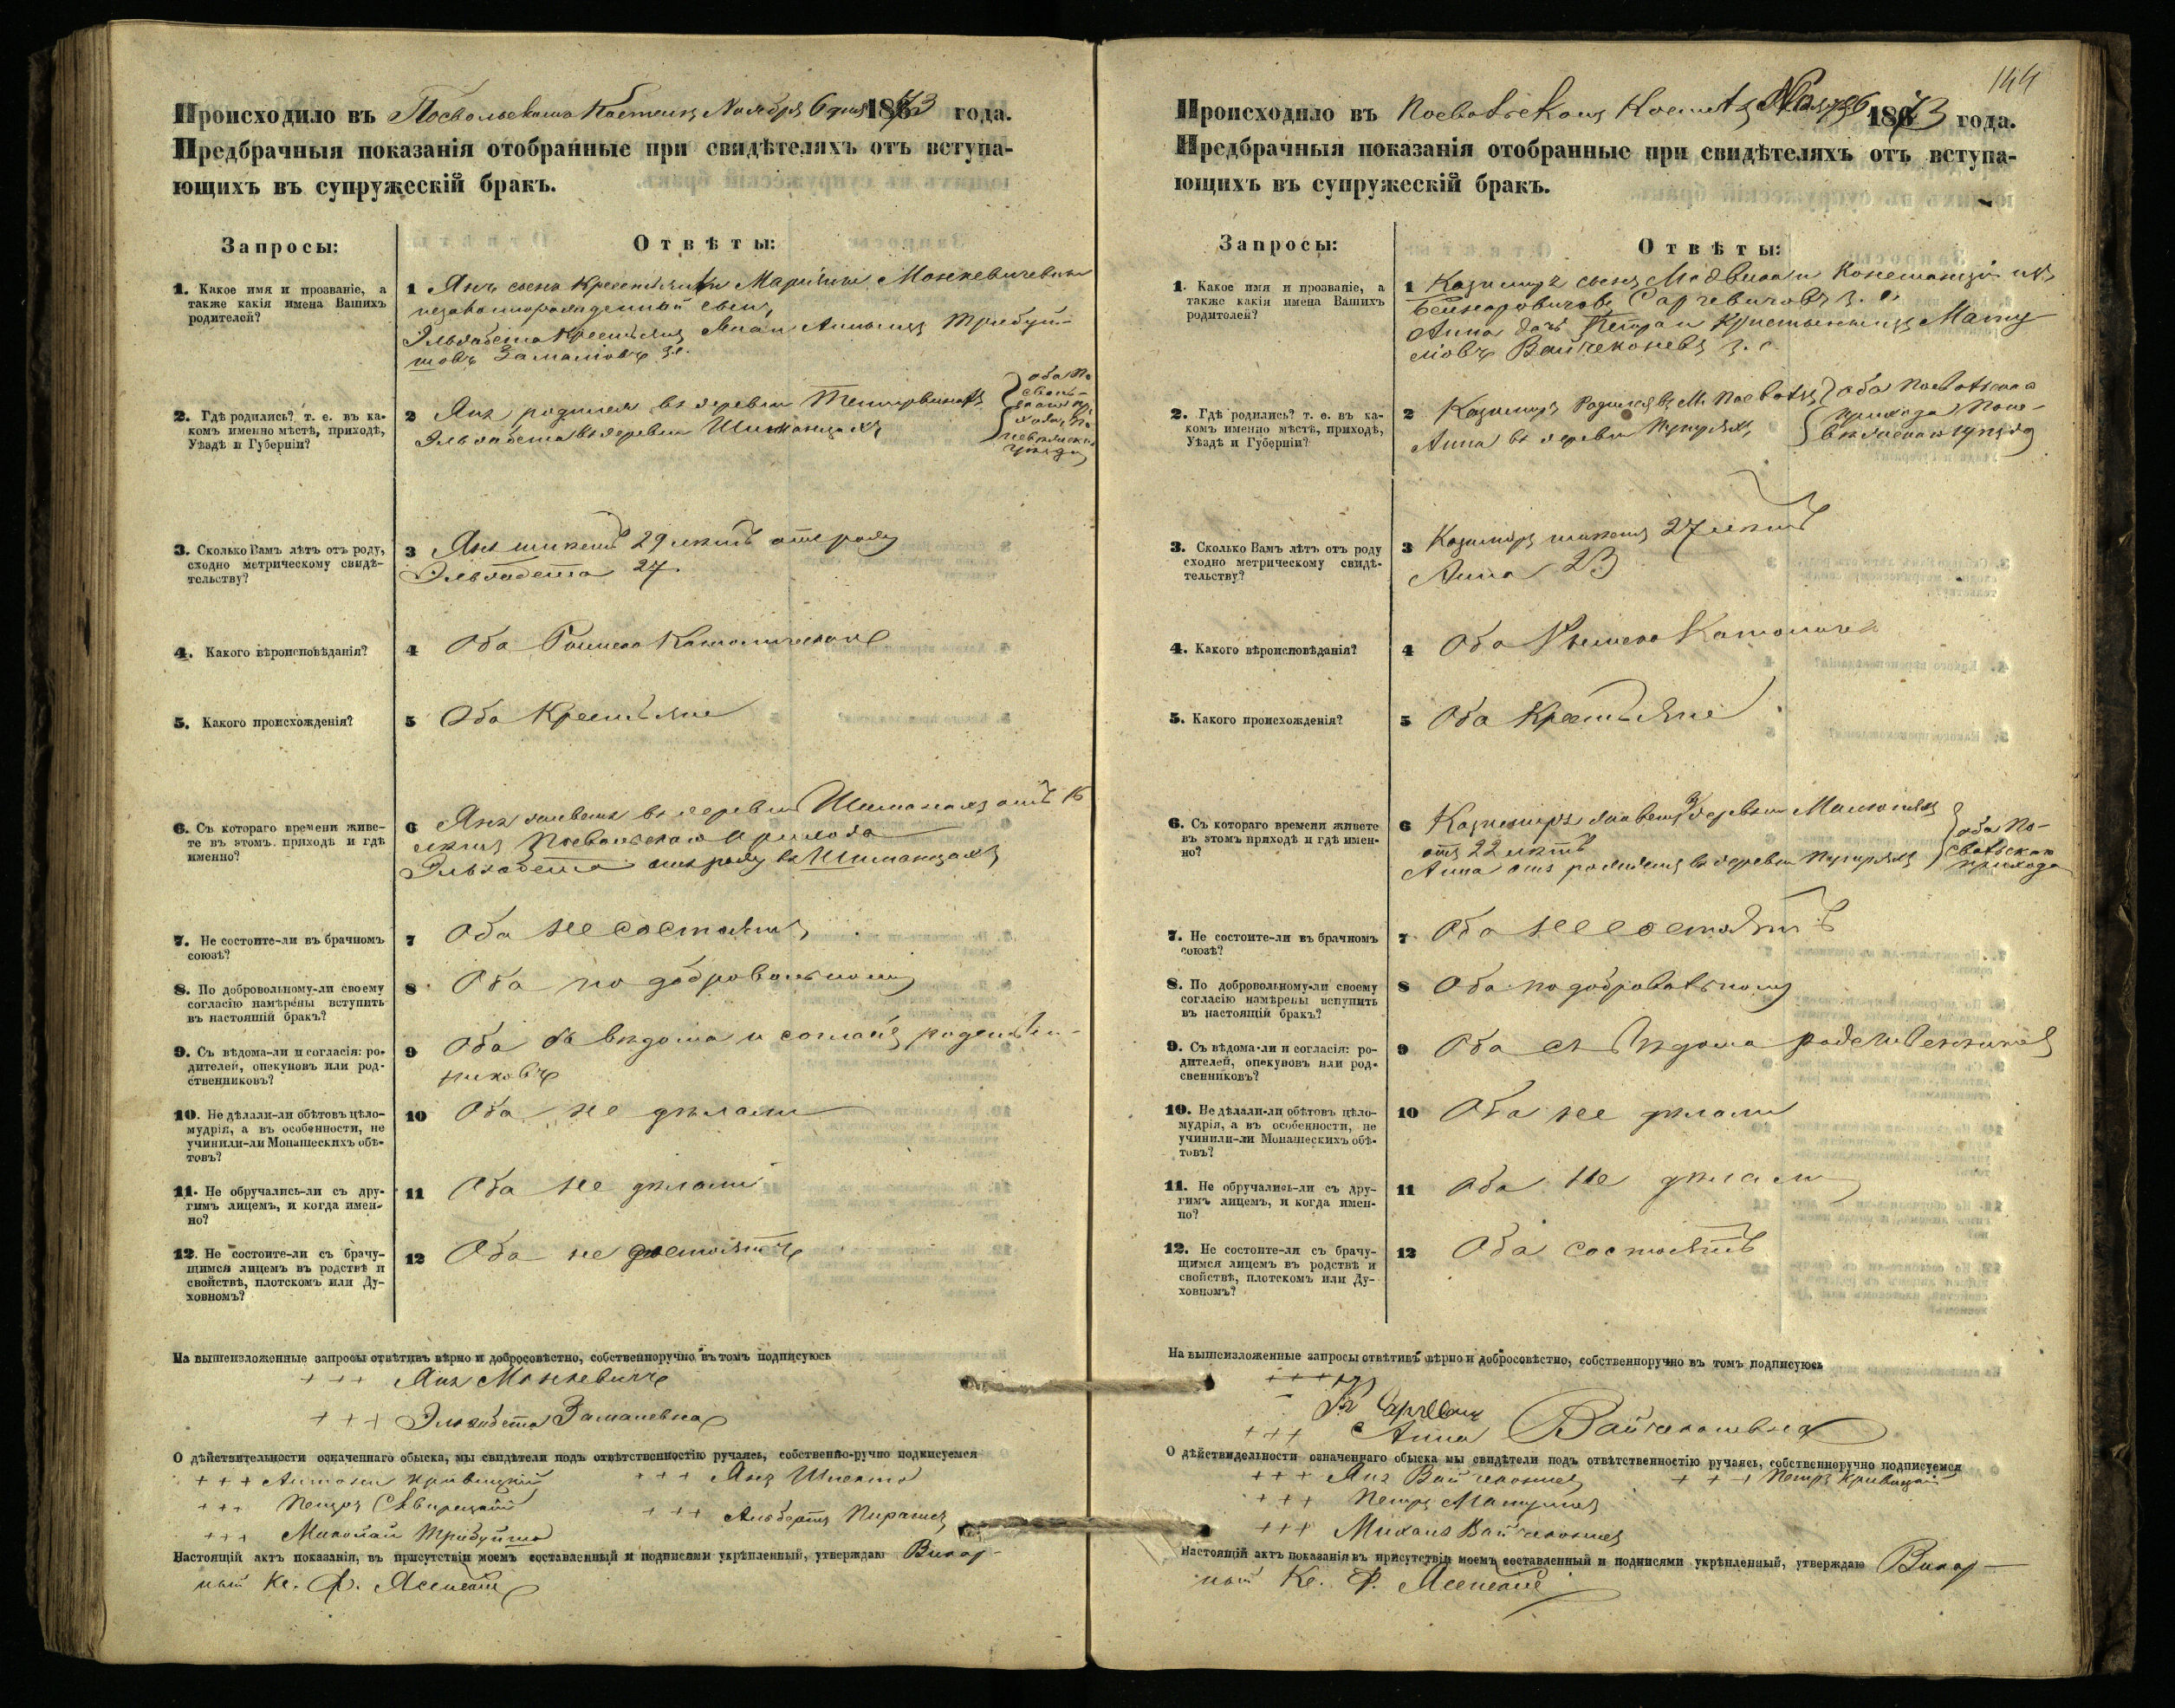 Происходило въ Посвольскомъ Костелѣ Ноября 6 дня 1873 года.
Предбрачныя показанія отобранные при свидѣтеляхъ отъ вступа-
ющихъ въ супружескій бракъ.
Запросы:
Отвѣты:
1. Какое имя и прозваніе, а
также какія имена Вашихъ
родителей?
1 Янъ сынъ крестьянки Маріанны Монкевичевны
незаконнорожденный сынъ,
Эльзабета крестьянъ Яна и Анны изъ Трибуй-
товъ
2. Гдѣ родились? т. е. въ ка-
комъ именно мѣстѣ, приходѣ,
Уѣздѣ и Губерніи?
2 Янъ родился въ деревни
Эльзабета въ деревни Шиманцахъ
3. Сколько Вамъ лѣтъ отъ роду,
сходно метрическому свидѣ-
тельству?
3 Янъ имѣетъ 29 лѣтъ отъ роду
Эльзабета 27
4. Какого вѣроисповѣданія?
4 Оба Римско Католическаго
5. Какого происхожденія?
5 Оба Крестьяне
6. Съ котораго времени живе-
те въ этомъ приходѣ и гдѣ
именно?
6 Янъ живетъ въ деревни отъ 15
лѣтъ Посвольскаго прихода
Эльзабета отъ роду въ Шиманцахъ
7. Не состоите-ли въ брачномъ
союзѣ?
7 Оба не состоятъ
8. По добровольному-ли своему
согласію намѣрены вступить
въ настоящій бракъ?
8 Оба по добровольному
9. Съ вѣдома-ли и согласія: ро-
дителей, опекуновъ или род-
ственниковъ?
9 Оба съ вѣдома и согласія родствен-
никовъ
10. Не дѣлали-ли обѣтовъ цѣло-
мудрія, а въ особенности, не
учинили-ли Монашескихъ обѣ-
товъ?
10 Оба не дѣлали
11. Не обручались-ли съ дру-
гимъ лицемъ, и когда имен-
но?
11 Оба не дѣлали
12. Не состоите-ли съ брачу-
щимся лицемъ въ родствѣ и
свойствѣ, плотскомъ или Ду-
ховномъ?
12 Оба не состоятъ
На вышеизложенные запросы отвѣтивъ вѣрно и добросовѣстно, собственноручно въ томъ подписуюсь
+ + + Янъ Монкевичъ
+ + + Эльзабета Заманевна
О дѣйствительности означеннаго обыска, мы свидѣтели подъ отвѣтственностію ручаясь, собственно-ручно подписуемся
+ + + Антони Кривицкій + + + Янъ
+ + + Петръ + + + Альбертъ
+ + + Миколай Трибуйтъ
Настоящій актъ показанія, въ присутствіи моемъ составленный и подписями укрѣпленный, утверждаю Викар-
ный Кс. Ф.
144
Происходило въ Посвольскомъ Костелѣ Ноября 6 1873 года.
Предбрачныя показанія отобранные при свидѣтеляхъ отъ вступа-
ющихъ въ супружескій бракъ.
Запросы:
Отвѣты:
1. Какое имя и прозваніе, а
также какія имена Вашихъ
родителей?
1 Казимиръ сынъ и Констанціи изъ
з. с.
Анна дочь Петра и Кристины изъ Мату-
з. с.
2. Гдѣ родились? т. е. въ ка-
комъ именно мѣстѣ, приходѣ,
Уѣздѣ и Губерніи?
2 Казимиръ родился въ М. Посволѣ оба Посвольскаго
Анна въ деревни прихода Поне-
вѣжскаго уѣзда
3. Сколько Вамъ лѣтъ отъ роду
сходно метрическому свидѣ-
тельству?
3 Казимиръ имѣетъ 27 лѣтъ
Анна 23
4. Какого вѣроисповѣданія?
4 Оба Римско Католическ
5. Какого происхожденія?
5 Оба Крестьяне
6. Съ котораго времени живете
въ этомъ приходѣ и гдѣ имен-
но?
6 Казимиръ живетъ въ деревни оба По-
отъ 22 лѣтъ свольскаго
Анна отъ рожденія въ деревни прихода
7. Не состоите-ли въ брачномъ
союзѣ?
7 Оба не состоятъ
8. По добровольному-ли своему
согласію намѣрены вступить
въ настоящій бракъ?
8 Оба по добровольному
9. Съ вѣдома-ли и согласія: ро-
дителей, опекуновъ или род-
свенниковъ?
9 Оба съ вѣдома родственниковъ
10. Не дѣлали-ли обѣтовъ цѣло-
мудрія, а въ особенности, не
учинили-ли Монашескихъ обѣ-
товъ?
10 Оба не дѣлали
11. Не обручались-ли съ дру-
гимъ лицемъ, и когда имен-
но?
11 Оба не дѣлали
12. Не состоите-ли съ брачу-
щимся лицемъ въ родствѣ и
свойствѣ, плотскомъ или Ду-
ховномъ?
12 Оба состоятъ
На вышеизложенные запросы отвѣтивъ вѣрно и добросовѣстно, собственноручно въ томъ подписуюсь
+ + + +
+ + + Анна
О дѣйствидельности означеннаго обыска мы свидѣтели подъ отвѣтственностію ручаясь, собственноручно подписуемся
+ + + Янъ + + + Петръ Кривицкій
+ + + Петръ
+ + + Михаилъ
Настоящій актъ показанія въ присутствіи моемъ составленный и подписями укрѣпленный, утверждаю Викар-
ный Кс. Ф.